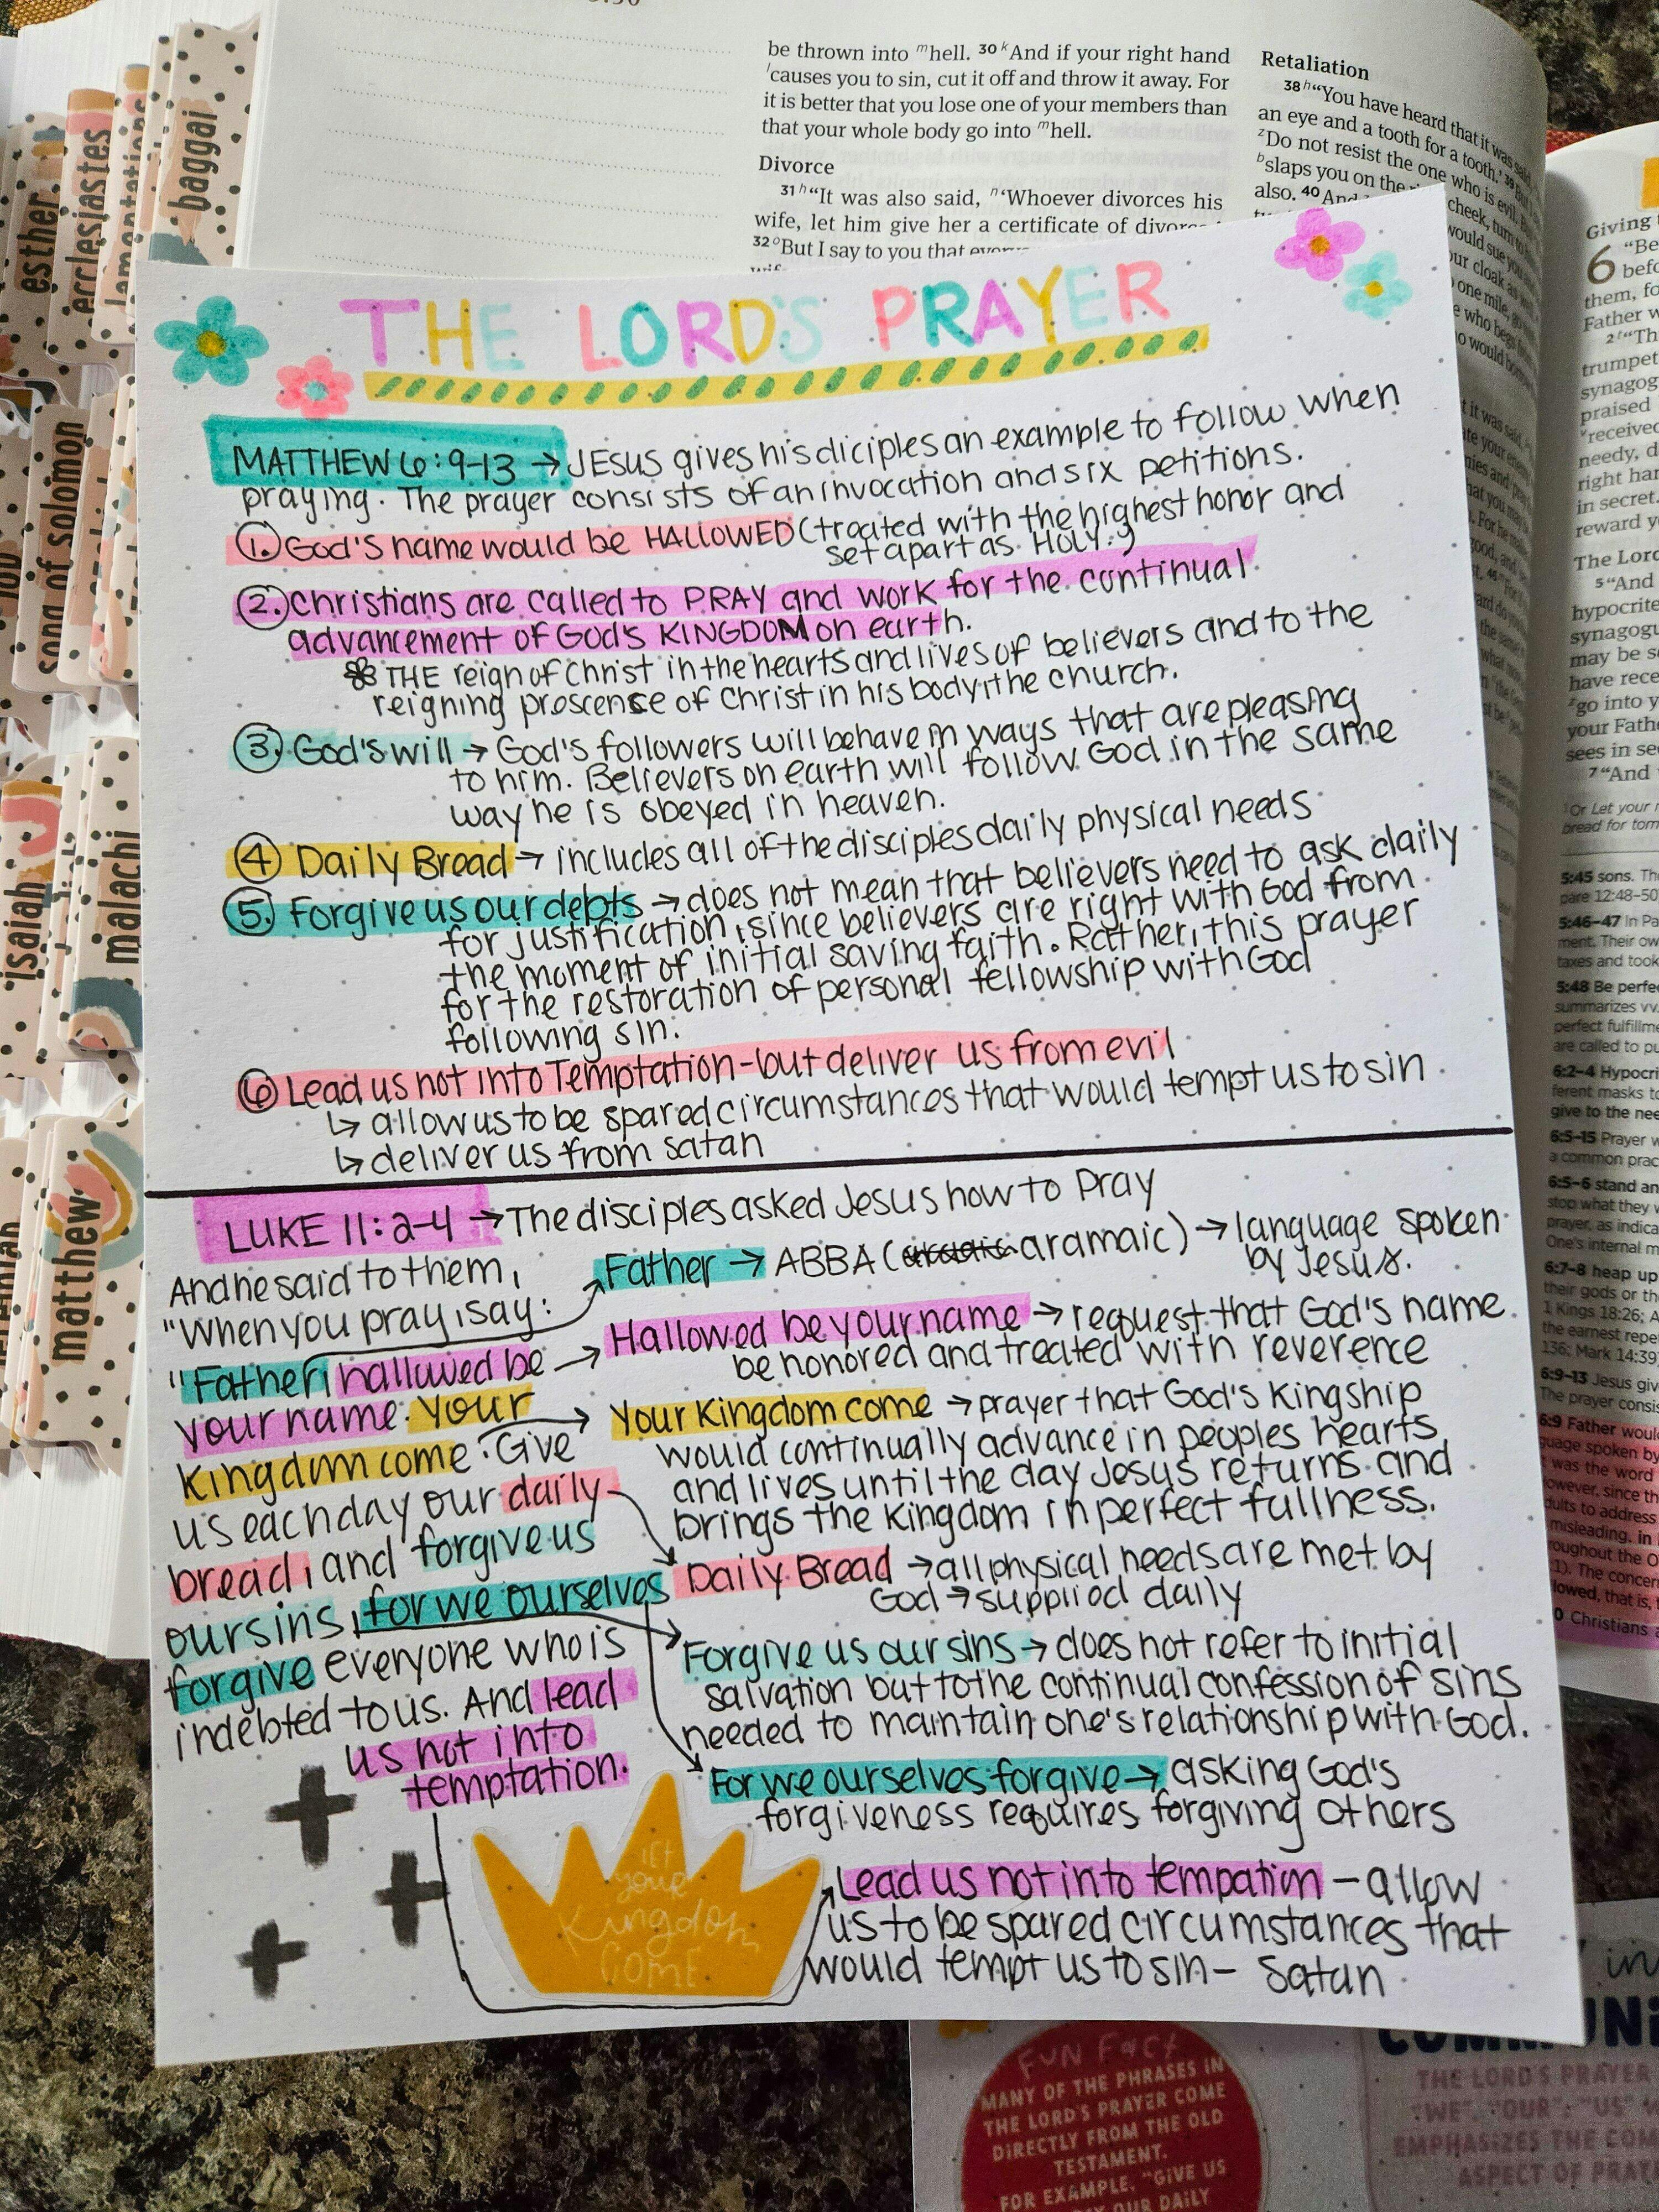 be thrown into ᵐhell. 30 ᵏAnd if your right hand
ˡcauses you to sin, cut it off and throw it away. For
it is better that you lose one of your members than
that your whole body go into ᵐhell.
Divorce
31 ʰ“It was also said, ⁿ‘Whoever divorces his
wife, let him give her a certificate of divorce
32 ᵒBut I say to you that
Retaliation
38 ʰ“You have heard that it was said,
an eye and a tooth for a tooth.’ 39
ᶻDo not resist the one who is evil. But
ᵇslaps you on the cheek, turn to
also. 40 And would sue you
esther
ecclesiastes
lamentations
haggai
job
song of solomon
isaiah
malachi
matthew
THE LORD'S PRAYER
MATTHEW 6:9-13 → JESUS gives his diciples an example to follow when
praying. The prayer consists of an invocation and six petitions.
1. God's name would be HALLOWED (treated with the highest honor and
set apart as HOLY.)
2. Christians are called to PRAY and work for the continual
advancement of God's KINGDOM on earth.
THE reign of Christ in the hearts and lives of believers and to the
reigning prescense of Christ in his body, the church.
3. God's will → God's followers will behave in ways that are pleasing
to him. Believers on earth will follow God in the same
way he is obeyed in heaven.
4 Daily Bread → includes all of the disciples daily physical needs
5. Forgive us our debts → does not mean that believers need to ask daily
for justification, since believers are right with God from
the moment of initial saving faith. Rather, this prayer
for the restoration of personal fellowship with God
following sin.
6 Lead us not into Temptation - but deliver us from evil
↳ allow us to be spared circumstances that would tempt us to sin.
↳ deliver us from satan
LUKE 11:2-4 → The disciples asked Jesus how to pray
And he said to them,
"When you pray, say:
"Father, hallowed be
your name. Your
Kingdom come. Give
us each day our daily
bread, and forgive us
our sins, for we ourselves
forgive everyone who is
indebted to us. And lead
us not into
temptation.
Father → ABBA (aramaic) → language spoken
by Jesus.
Hallowed be your name → request that God's name
be honored and treated with reverence
Your Kingdom come → prayer that God's Kingship
would continually advance in peoples hearts
and lives until the day Jesus returns and
brings the Kingdom in perfect fullness.
Daily Bread → all physical needs are met by
God → supplied daily
Forgive us our sins → does not refer to initial
salvation but to the continual confession of sins
needed to maintain one's relationship with God.
For we ourselves forgive → asking God's
forgiveness requires forgiving others
Lead us not into tempation - allow
us to be spared circumstances that
would tempt us to sin - Satan
let
your
Kingdom
COME
Giving
6 “Be
them, fo
Father w
2 “Th
trumpet
synagog
praised
received
needy, d
right han
in secret.
reward yo
The Lord
5 “And
hypocrite
synagogu
may be s
have rece
go into y
your Fath
sees in se
7 “And
Or Let your
bread for tom
5:45 sons. The
pare 12:48-50
5:46-47 In Pa
ment. Their ow
taxes and took
5:48 Be perfe
summarizes vv.
perfect fulfillme
are called to pu
6:2-4 Hypocri
ferent masks to
give to the nee
6:5-15 Prayer w
a common prac
6:5-6 stand an
stop what they w
prayer, as indica
One's internal m
6:7-8 heap up
their gods or th
1 Kings 18:26; A
the earnest repe
136; Mark 14:39
6:9-13 Jesus giv
The prayer consis
6:9 Father woul
guage spoken by
it was the word
owever, since th
dults to address
misleading. in
roughout the O
1). The concer
lowed, that is, t
0 Christians a
FUN FACT
MANY OF THE PHRASES IN
THE LORD'S PRAYER COME
DIRECTLY FROM THE OLD
TESTAMENT.
FOR EXAMPLE, "GIVE US
OUR DAILY
in
THE LORD'S PRAYER
"WE", "OUR", "US"
EMPHASIZES THE COM
ASPECT OF PRAY